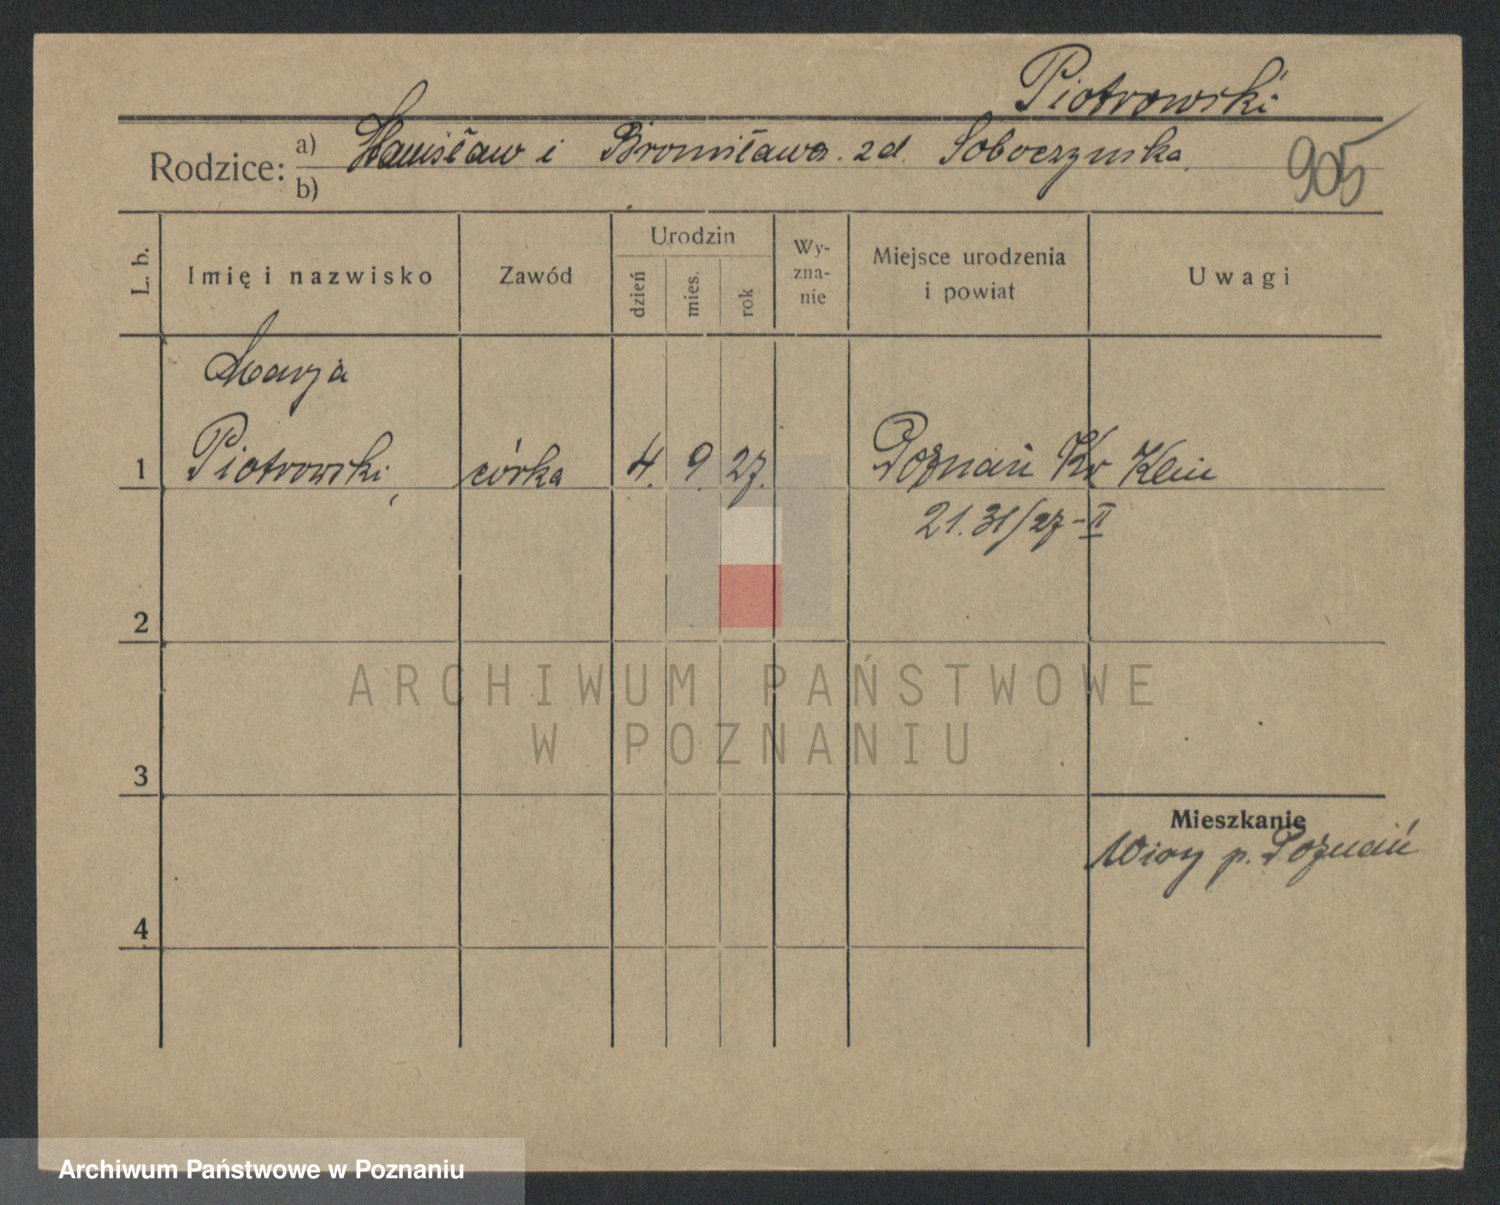 Piotrowski
Rodzice: a) Stanisław i Bronisława zd. Soboczynska
b)
905
L. b.
Imię i nazwisko
Zawód
Urodzin
dzień
mies.
rok
Wy-
zna-
nie
Miejsce urodzenia
i powiat
Uwagi
Marja
1 Piotrowski córka 4. 9. 27. Poznań Kr Klin
21.31/27-II
2
3
4
Mieszkanie
Wiry p. Poznań
ARCHIWUM PAŃSTWOWE
W POZNANIU
Archiwum Państwowe w Poznaniu